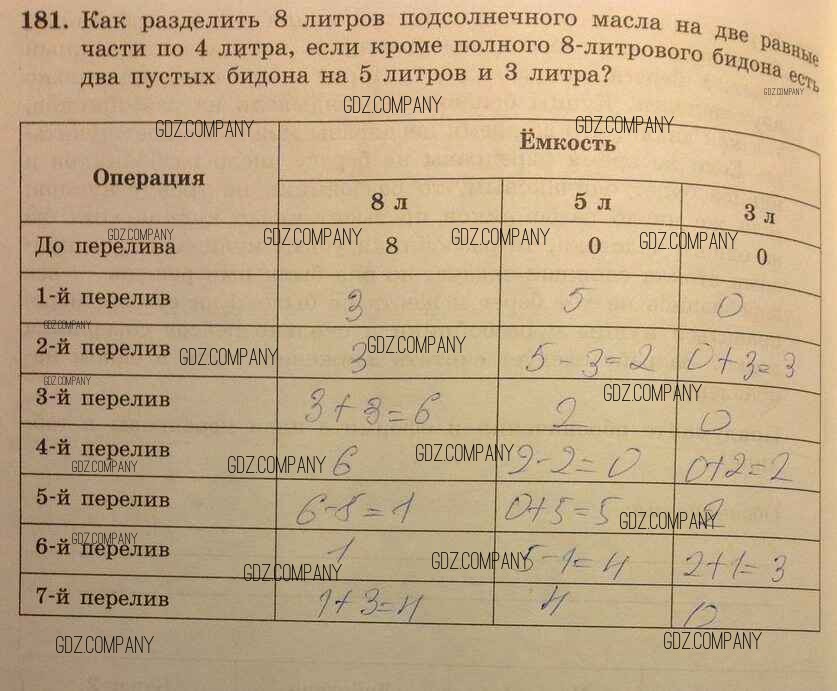 181. Как разделить 8 литров подсолнечного масла на две равные
части по 4 литра, если кроме полного 8-литрового бидона есть
два пустых бидона на 5 литров и 3 литра?
GDZ.COMPANY
GDZ.COMPANY
GDZ.COMPANY
GDZ.COMPANY
Операция
Ёмкость
8 л 5 л 3 л
До перелива 8 0 0
GDZ.COMPANY GDZ.COMPANY GDZ.COMPANY GDZ.COMPANY
1-й перелив 3 5 0
GDZ.COMPANY
2-й перелив 3 5-3=2 0+3=3
GDZ.COMPANY GDZ.COMPANY
GDZ.COMPANY GDZ.COMPANY
3-й перелив 3+3=6 2 0
4-й перелив 6 2-2=0 0+2=2
GDZ.COMPANY GDZ.COMPANY GDZ.COMPANY
5-й перелив 6-5=1 0+5=5 2
GDZ.COMPANY
GDZ.COMPANY
6-й перелив 1 5-1=4 2+1=3
GDZ.COMPANY GDZ.COMPANY
7-й перелив 1+3=4 4 0
GDZ.COMPANY GDZ.COMPANY